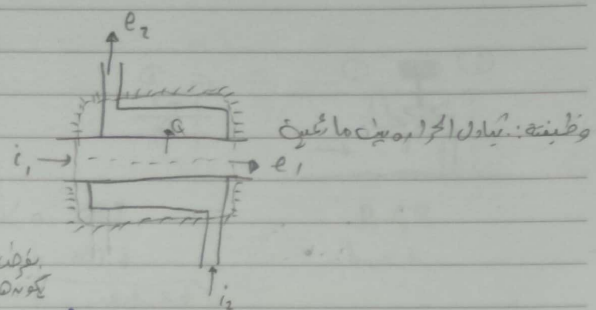 e₂
Q
وظيفته: تبادل الحرارة بين مائعين
i₁ → e₁
بفرض
i₂